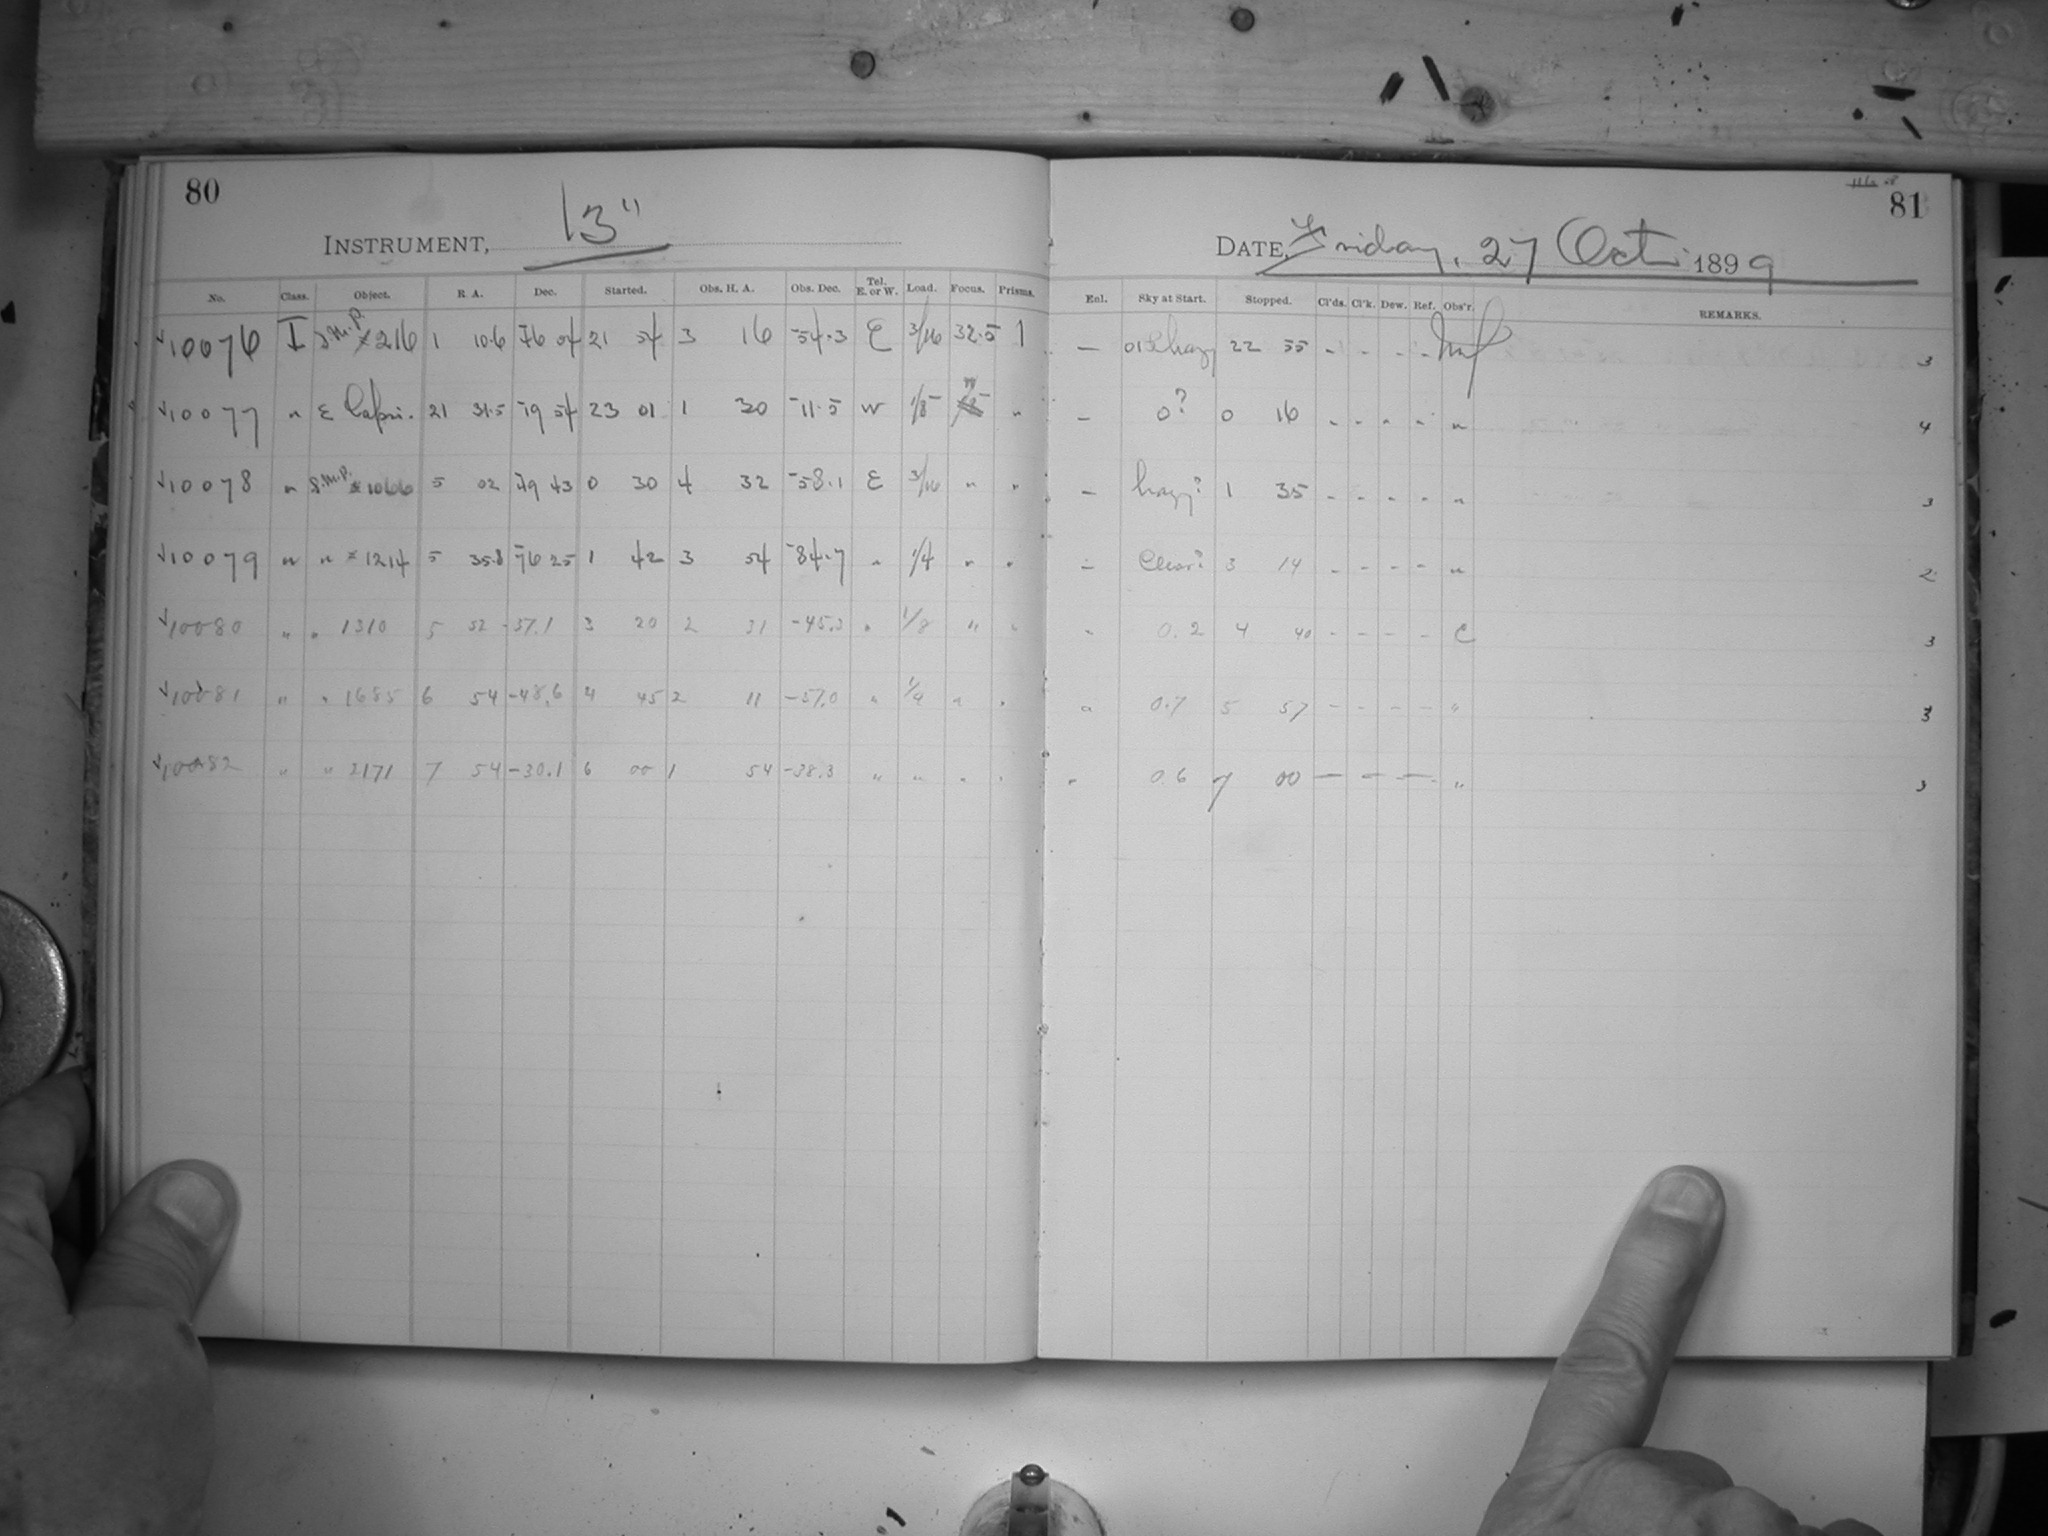 80
INSTRUMENT, 13"
No. Class. Object. R. A. Dec. Started. Obs. H. A. Obs. Dec. Tel. E. or W. Load. Focus. Prisms.
√10076 I S.M.P. *216 1 10.6 -46 04 21 54 3 16 -54.3 E 3/16 32.5 1
√10077 " ε Capri. 21 31.5 -19 54 23 01 1 30 -11.5 W 1/8 "
√10078 " S.M.P. *1066 5 02 -49 43 0 30 4 32 -58.1 E 3/16 " "
√10079 " " *1214 5 35.8 -76 25 1 42 3 54 -84.7 " 1/4 " "
√10080 " " 1310 5 52 -37.1 3 20 2 31 -45.3 " 1/8 " "
√10081 " " 1685 6 54 -48.6 4 45 2 11 -57.0 " 1/4 " "
√10082 " " 2171 7 54 -30.1 6 00 1 54 -38.3 " " " "
81
DATE, Friday, 27 Oct. 1899
Enl. Sky at Start. Stopped. Cl'ds. Cl'k. Dew. Ref. Obs'r. REMARKS.
— hazy 22 55 - - - - 3
— 0? 0 16 - - - - " 4
— hazy? 1 35 - - - - " 3
— Clear? 3 14 - - - - " 2
" 0.2 4 40 - - - - C 3
" 0.7 5 57 - - - - " 3
" 0.6 7 00 — — — " 3